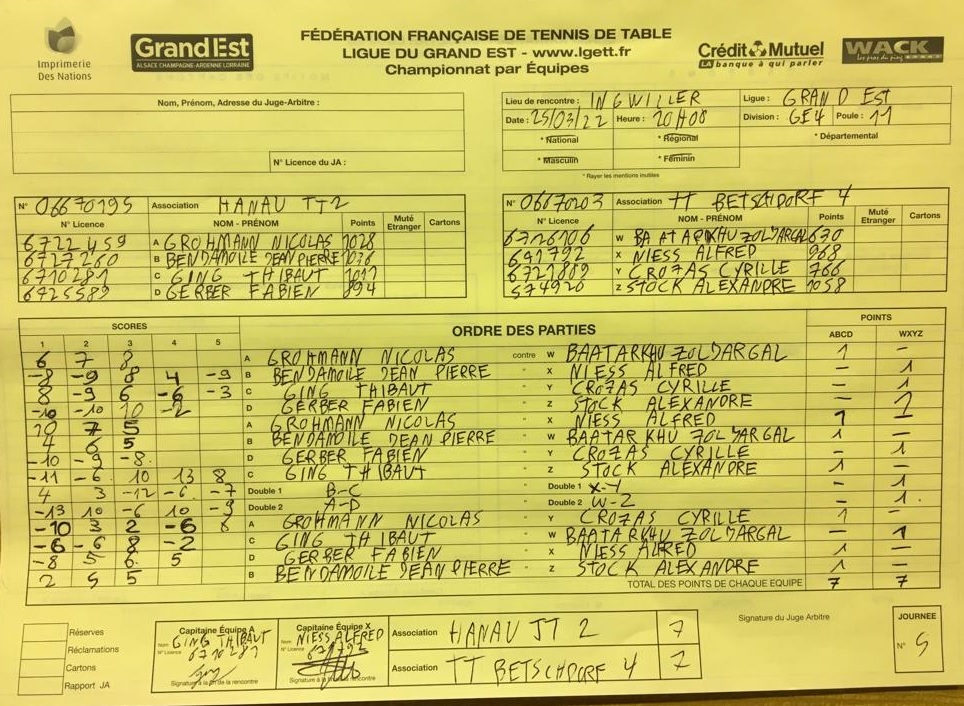 Imprimerie
Des Nations
Grand Est
ALSACE CHAMPAGNE-ARDENNE LORRAINE
FÉDÉRATION FRANÇAISE DE TENNIS DE TABLE
LIGUE DU GRAND EST - www.lgett.fr
Championnat par Équipes
Crédit Mutuel
LA banque à qui parler
WACK
Nom, Prénom, Adresse du Juge-Arbitre :
N° Licence du JA :
Lieu de rencontre : INGWILLER Ligue : GRAND EST
Date : 25/03/22 Heure : 20H00 Division : GE4 Poule : 11
* National * Régional * Départemental
* Masculin * Féminin
* Rayer les mentions inutiles
N° 06670195 Association HANAU TT2
N° Licence NOM - PRÉNOM Points Muté Etranger Cartons
6722459 A GROHMANN NICOLAS 1028
6727260 B BENDAMOILE JEAN PIERRE 1036
6710281 C GING THIBAUT
6725589 D GERBER FABIEN 894
N° 06670203 Association TT BETSCHDORF 4
N° Licence NOM - PRÉNOM Points Muté Etranger Cartons
6726106 W BAATARKHU ZOLJARGAL 630
691792 X NIESS ALFRED 968
6721809 Y CROZAS CYRILLE 766
574920 Z STOCK ALEXANDRE 1058
SCORES ORDRE DES PARTIES POINTS
1 2 3 4 5 ABCD WXYZ
6 7 8 A GROHMANN NICOLAS contre W BAATARKHU ZOLJARGAL 1 -
-8 -9 8 4 -9 B BENDAMOILE JEAN PIERRE " X NIESS ALFRED - 1
8 -9 6 -6 -3 C GING THIBAUT " Y CROZAS CYRILLE - 1
-10 -10 10 -2 D GERBER FABIEN " Z STOCK ALEXANDRE - 1
10 7 5 A GROHMANN NICOLAS " X NIESS ALFRED 1 -
4 6 5 B BENDAMOILE JEAN PIERRE " W BAATARKHU ZOLJARGAL 1 -
-10 -9 -8 D GERBER FABIEN " Y CROZAS CYRILLE - 1
-11 -6 10 13 8 C GING THIBAUT " Z STOCK ALEXANDRE 1 -
4 3 -12 -6 -7 Double 1 B-C " Double 1 X-Y - 1
-13 10 -6 10 -9 Double 2 A-D " Double 2 W-Z - 1
-10 3 2 -6 8 A GROHMANN NICOLAS " Y CROZAS CYRILLE 1 -
-6 -6 8 -2 C GING THIBAUT " W BAATARKHU ZOLJARGAL - 1
-8 5 6 5 D GERBER FABIEN " X NIESS ALFRED 1 -
2 5 5 B BENDAMOILE JEAN PIERRE " Z STOCK ALEXANDRE 1 -
TOTAL DES POINTS DE CHAQUE EQUIPE 7 7
Réserves
Réclamations
Cartons
Rapport JA
Capitaine Équipe A
Nom GING THIBAUT
N° Licence 6710281
Signature à la fin de la rencontre
Capitaine Équipe X
Nom NIESS ALFRED
N° Licence 691792
Signature à la fin de la rencontre
Association HANAU TT 2 7
Association TT BETSCHDORF 4 7
Signature du Juge Arbitre
JOURNEE
N° 5